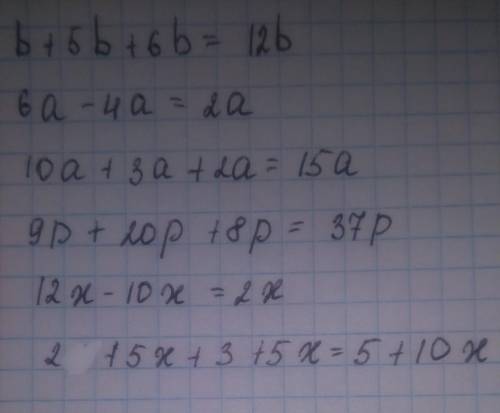 b + 5b + 6b = 12b
6a - 4a = 2a
10a + 3a + 2a = 15a
9p + 20p + 8p = 37p
12x - 10x = 2x
2 + 5x + 3 + 5x = 5 + 10x